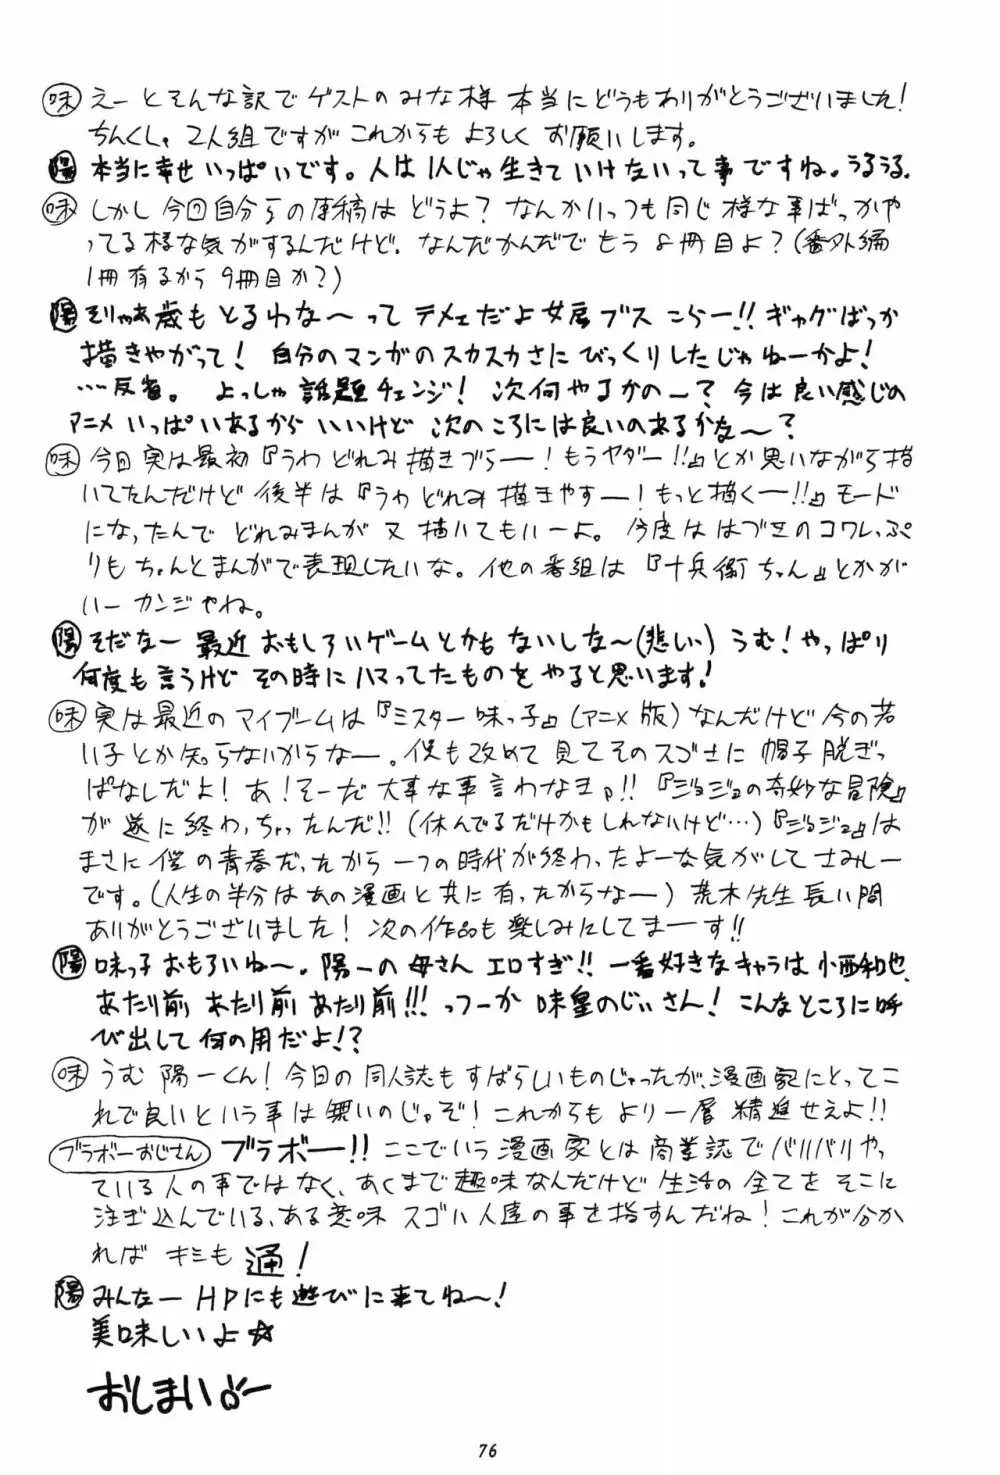 味 えーとそんな訳でゲストのみな様 本当にどうもありがとうございました!
ちんくしゃ2人組ですが これからも よろしく お願いします。
陽 本当に幸せいっぱいです。人は1人じゃ生きていけないって事ですね。うるうる。
味 しかし今回自分らの原稿は どうよ? なんかいっつも同じ様な事ばっかや
ってる様な気がするんだけど. なんだかんだで もう8冊目よ?(番外編
1冊有るから 9冊目か?)
陽 そりゃあ歳もとるわな〜って テメェだよ女房ブス こらー!! ギャグばっか
描きやがって! 自分のマンガのスカスカさに びっくりしたじゃねーかよ!
…反省。 よっしゃ話題チェンジ! 次何やるかの〜? 今は良い感じの
アニメ いっぱいあるから いいけど 次のころには良いのあるかな〜?
味 今回実は最初『うわ どれみ描きづらー!もうヤダー!!』とか思いながら描
いてたんだけど 後半は『うわ どれみ 描きやすー!もっと描くー!!』モード
になったんで どれみまんが 又 描いてもいーよ。今度は はづきのコワレっぷ
りも ちゃんとまんがで表現したいな。他の番組は『十兵衛ちゃん』とかが
いー カンジやね。
陽 そだなー 最近 おもしろいゲームとかも ないしな〜(悲しい) うむ! やっぱり
何度も言うけど その時にハマってたものを やると思います!
味 実は最近のマイブームは『ミスター味っ子』(アニメ版) なんだけど 今の若
い子とか知らないからなー。僕も改めて見てそのスゴさに 帽子脱ぎっ
ぱなしだよ! あ!そーだ 大事な事言わなきゃ!! 『ジョジョの奇妙な冒険』
が 遂に終わっちゃったんだ!! (休んでるだけかもしれないけど…)『ジョジョ』は
まさに 僕の青春だったから 一つの時代が終わったよーな気がして さみしー
です。(人生の半分はあの漫画と共に有ったからなー) 荒木先生 長い間
ありがとうございました! 次の作品も楽しみにしてまーす!!
陽 味っ子おもろいね〜。陽一の母さん エロすぎ!! 一番好きなキャラは小西和也、
あたり前 あたり前 あたり前!!! っつーか 味皇のじぃさん! こんなところに呼
び出して何の用だよ!?
味 うむ 陽一くん! 今日の同人誌もすばらしいものじゃったが、漫画家にとってこ
れで良いという事は無いのじゃぞ! これからも より一層 精進せえよ!!
ブラボーおじさん ブラボー!! ここでいう漫画家とは商業誌でバリバリやっ
ている人の事ではなく、あくまで趣味なんだけど 生活の全てを そこに
注ぎ込んでいる、ある意味 スゴい人達の事を指すんだね! これが分か
れば キミも 通!
陽 みんなー HPにも遊びに来てね〜!
美味しいよ☆
おしまい
76